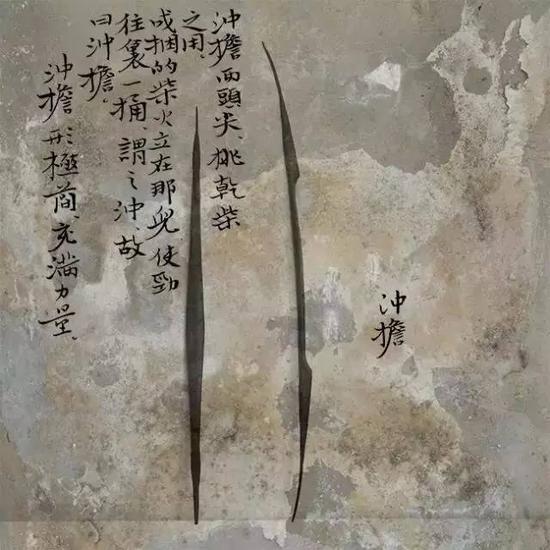 沖擔
沖擔両頭尖、挑乾柴
之用。
成捆的柴火立在那兒使勁
往裏一捅、謂之沖、故
曰沖擔。
沖擔形極簡、充滿力量、